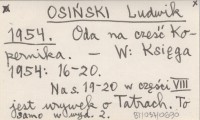 OSIŃSKI Ludwik
1954. Oda na cześć Ko-
pernika. — W: Księga
1954: 16-20.
Na s. 19-20 w części VIII
jest urywek o Tatrach. To
samo w wyd. 2.